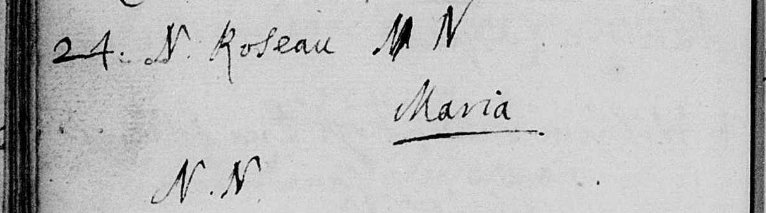 24. N. Roseau N N
Maria
N. N.